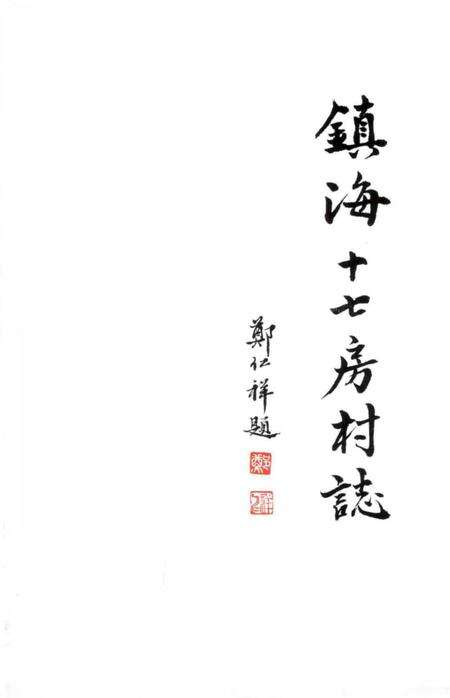 鎮海十七房村誌
鄭仁祥題
鄭